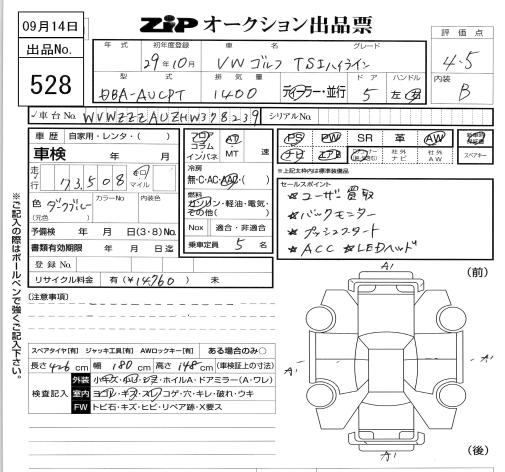 09月14日
ZIP オークション出品票
出品No.
528
評価点
4.5
内装
B
年式 初年度登録 車名 グレード
29年10月 VW ゴルフ TSIハイライン
型式 排気量 ドア ハンドル
DBA-AUCPT 1400 ディーラー・並行 5 左・右
車台No. WVWZZZAUZHW378239 シリアルNo.
車歴 自家用・レンタ・( )
車検 年 月
走行 73,508 キロ マイル
色 ダークブルー カラーNo 内装色
(元色)
予備検 年 月 日(3・8)No.
書類有効期限 年 月 日迄
登録No.
リサイクル料金 有(¥14760) 未
フロア コラム インパネ
AT・MT 速
冷房
無・C・AC・AAC・( )
燃料
ガソリン・軽油・電気・その他( )
Nox 適合・非適合
乗車定員 5 名
PS PW SR 革 AW
ナビ エアB 社外ナビ 社外AW スペアキー
*上記太枠内は標準装備品
セールスポイント
★ユーザー買取
★バックモニター
★プッシュスタート
★ACC ★LEDヘッド
※ご記入の際はボールペンで強くご記入下さい。
[注意事項]
スペアタイヤ[有] ジャッキ工具[有] AWロックキー[有] ある場合のみ○
長さ426cm 幅180cm 高さ148cm (車検証上の寸法)
検査記入
外装 小キズ・小U・シミ・ホイルA・ドアミラー(A・ワレ)
室内 ヨゴレ・キズ・スレ・コゲ・穴・キレ・破れ・ウキ
FW トビ石・キズ・ヒビ・リペア跡・X要ス
(前)
A1
A1
A1
A1
(後)